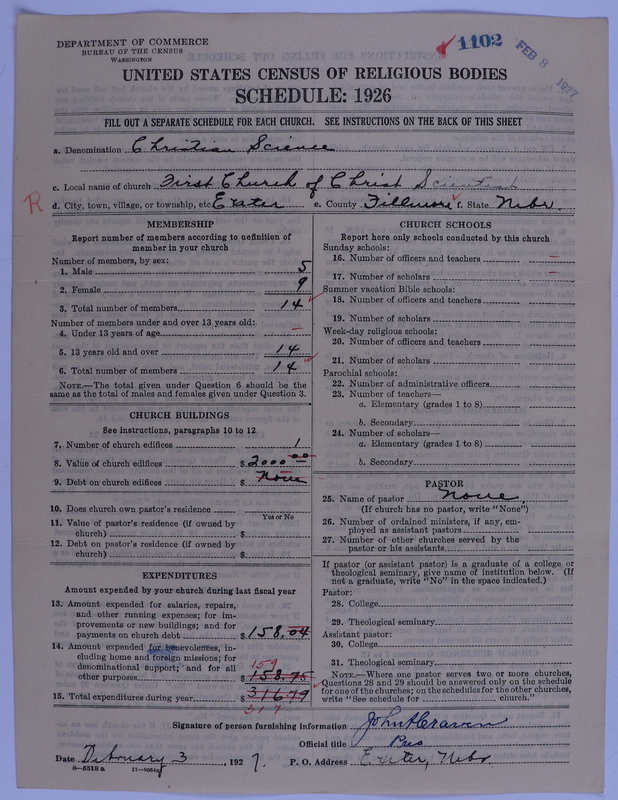 1102
FEB 8 1927
DEPARTMENT OF COMMERCE
BUREAU OF THE CENSUS
WASHINGTON
UNITED STATES CENSUS OF RELIGIOUS BODIES
SCHEDULE: 1926
FILL OUT A SEPARATE SCHEDULE FOR EACH CHURCH. SEE INSTRUCTIONS ON THE BACK OF THIS SHEET
a. Denomination Christian Science
c. Local name of church First Church of Christ Scientist
R
d. City, town, village, or township, etc Exeter e. County Fillmore f. State Nebr.
MEMBERSHIP
Report number of members according to definition of
member in your church
Number of members, by sex:
1. Male 5
2. Female 9
3. Total number of members 14
Number of members under and over 13 years old:
4. Under 13 years of age —
5. 13 years old and over 14
6. Total number of members 14
NOTE.—The total given under Question 6 should be the
same as the total of males and females given under Question 3.
CHURCH BUILDINGS
See instructions, paragraphs 10 to 12
7. Number of church edifices 1
8. Value of church edifices $ 2000 00
9. Debt on church edifices $ None
10. Does church own pastor's residence
Yes or No
11. Value of pastor's residence (if owned by
church) $
12. Debt on pastor's residence (if owned by
church) $
EXPENDITURES
Amount expended by your church during last fiscal year
13. Amount expended for salaries, repairs,
and other running expenses; for im-
provements or new buildings; and for
payments on church debt $ 158.04
14. Amount expended for benevolences, in-
cluding home and foreign missions; for
denominational support; and for all
159
other purposes $ 158.75
15. Total expenditures during year $ 316 79
317
CHURCH SCHOOLS
Report here only schools conducted by this church
Sunday schools:
16. Number of officers and teachers —
17. Number of scholars —
Summer vacation Bible schools:
18. Number of officers and teachers
19. Number of scholars
Week-day religious schools:
20. Number of officers and teachers
21. Number of scholars
Parochial schools:
22. Number of administrative officers
23. Number of teachers—
a. Elementary (grades 1 to 8)
b. Secondary
24. Number of scholars—
a. Elementary (grades 1 to 8)
b. Secondary
PASTOR
25. Name of pastor None
(If church has no pastor, write "None")
26. Number of ordained ministers, if any, em-
ployed as assistant pastors
27. Number of other churches served by the
pastor or his assistants
If pastor (or assistant pastor) is a graduate of a college or
theological seminary, give name of institution below. (If
not a graduate, write "No" in the space indicated.)
Pastor:
28. College
29. Theological seminary
Assistant pastor:
30. College
31. Theological seminary
NOTE.—Where one pastor serves two or more churches,
Questions 28 and 29 should be answered only on the schedule
for one of the churches; on the schedules for the other churches,
write "See schedule for church."
Signature of person furnishing information John H Craven
Official title Pres
Date February 3, 1927. P. O. Address Exeter, Nebr
8—5518 a